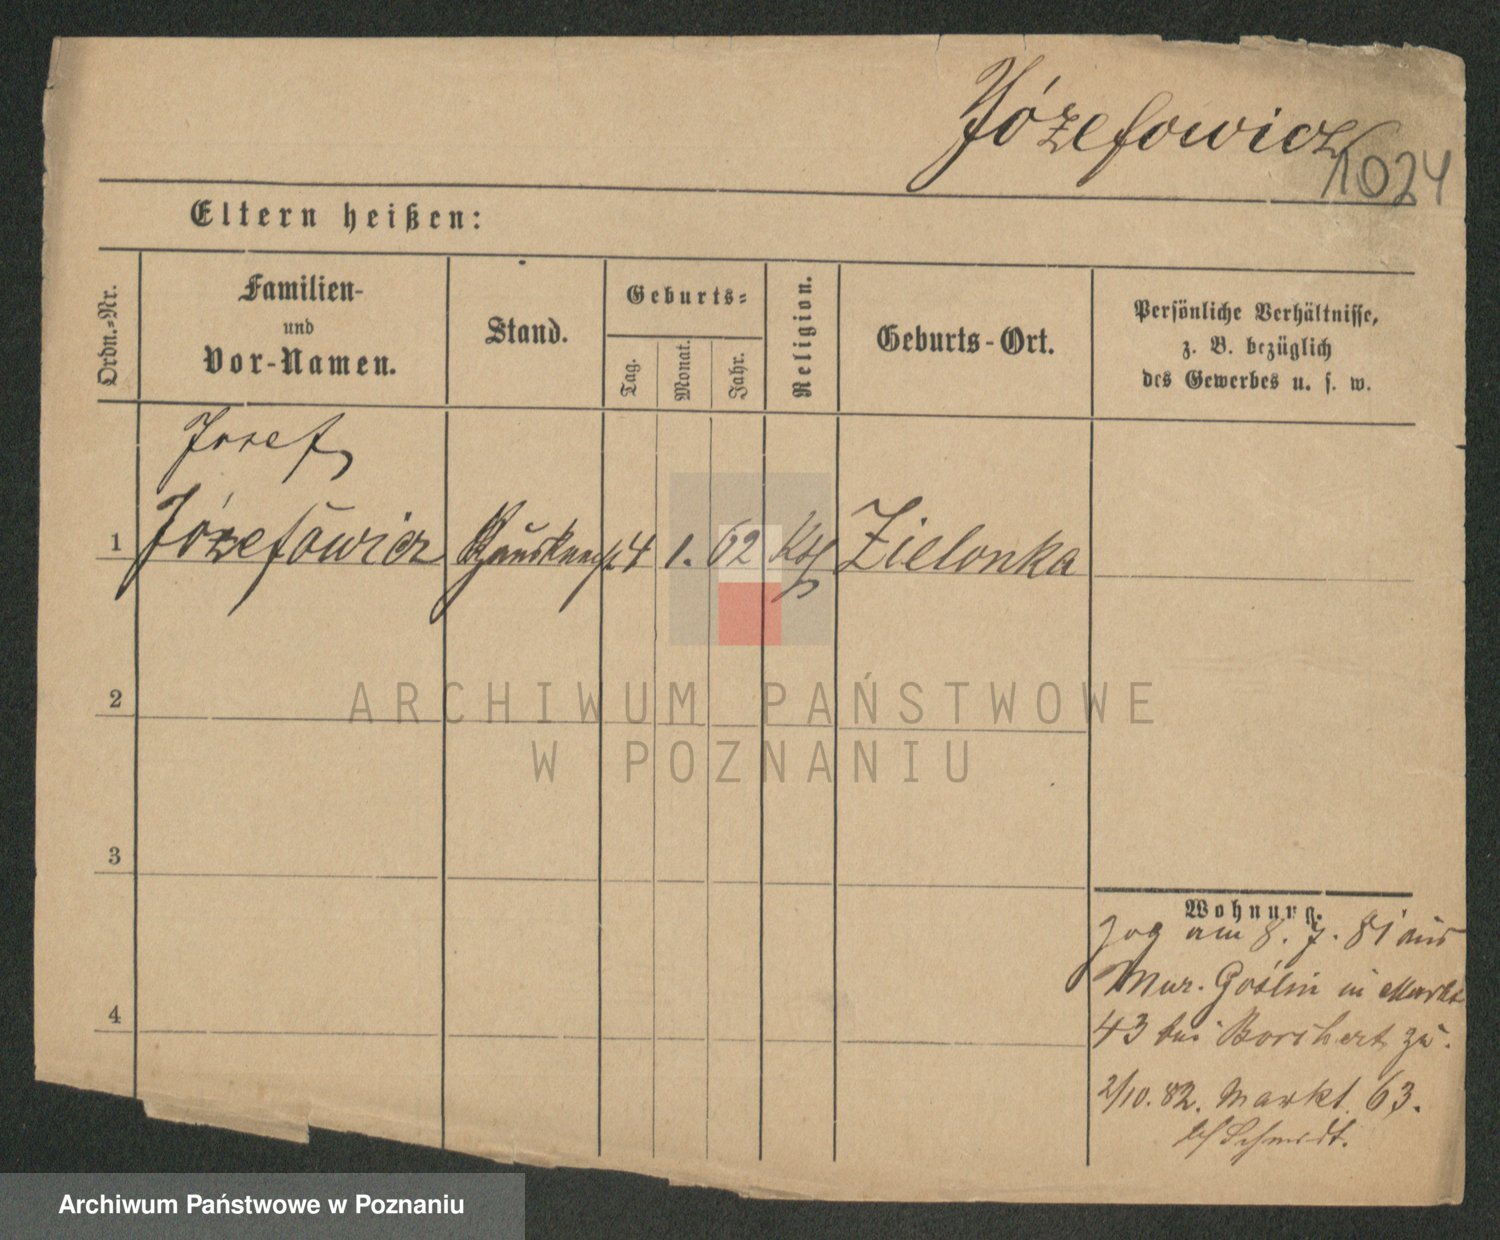 Józefowicz
1024
Eltern heißen:
Ordn.-Nr.
Familien-
und
Vor-Namen.
Stand.
Geburts-
Tag.
Monat.
Jahr.
Religion.
Geburts-Ort.
Persönliche Verhältnisse,
z. B. bezüglich
des Gewerbes u. s. w.
Josef
1 Józefowicz Hausknecht 4 1. 62 Kth Zielonka
2
3
4
Wohnung.
zog am 8. 7. 81 aus
Mur. Goślin in Markt
43 bei Borchert zu.
2/10. 82. Markt 63.
bei Schmidt.
ARCHIWUM PAŃSTWOWE
W POZNANIU
Archiwum Państwowe w Poznaniu